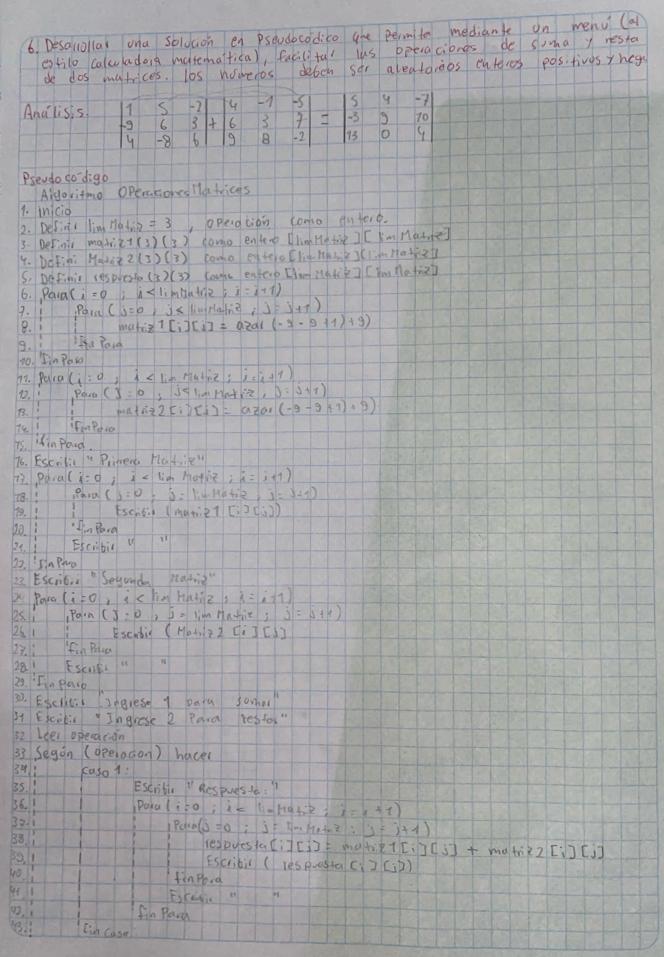 6. Desarrollar una solución en Pseudocódico que permite mediante un menú (al
estilo calculadora matemática), facilitar las operaciones de suma y resta
de dos matrices. los números deben ser aleatorios enteros positivos y neg
Análisis. |1 5 -2| |4 -1 -5| |5 4 -7|
|-9 6 3| + |6 3 7| = |-3 9 10|
|4 -8 6| |9 8 -2| |13 0 4|
Pseudo código
Algoritmo OperacionesMatrices
1. Inicio
2. Definir limMatriz = 3 , operación como entero.
3. Definir matriz1(3)(3) como entero [limMatriz][limMatriz]
4. Definir Matriz2(3)(3) como entero[limMatriz][limMatriz]
5. Definir respuesta(3)(3) como entero[limMatriz][limMatriz]
6. Para(i=0 ; i<limMatriz ; i=i+1)
7. Para(j=0 , j<limMatriz , j=j+1)
8. matriz1[i][j] = azar(-9-9+1)+9)
9. FinPara
10. FinPara
11. Para(i=0 , i < limMatriz ; i=i+1)
12. Para(J=0 , j<limMatriz , j=j+1)
13. matriz2[i][j] = azar(-9-9+1)+9)
14. FinPara
15. FinPara.
16. Escribir "Primera Matriz"
17. Para(i=0 , i < limMatriz ; i=i+1)
18. Para(j=0 , j=limMatriz , j=j+1)
19. Escribir (matriz1[i][j])
20. FinPara
21. Escribir " "
22. FinPara
23. Escribir "Segunda Matriz"
24. Para(i=0 , i<limMatriz ; i=i+1)
25. Para(J=0 , j=limMatriz ; j=j+1)
26. Escribir (Matriz2[i][j]
27. FinPara
28. Escribir " "
29. FinPara
30. Escribir "Ingrese 1 para sumar"
31 Escribir "Ingrese 2 Para restar"
32 Leer operación
33 Según (operacion) hacer
34. caso 1:
35. Escribir "Respuesta:"
36. Para(i=0 ; i< limMatriz ; i=i+1)
37. Para(j=0 ; j=limMatriz ; j=j+1)
38. respuesta[i][j] = matriz1[i][j] + matriz2[i][j]
39. Escribir (respuesta[i][j])
40. finPara
41. Escribir " "
42. finPara
43. Fin caso